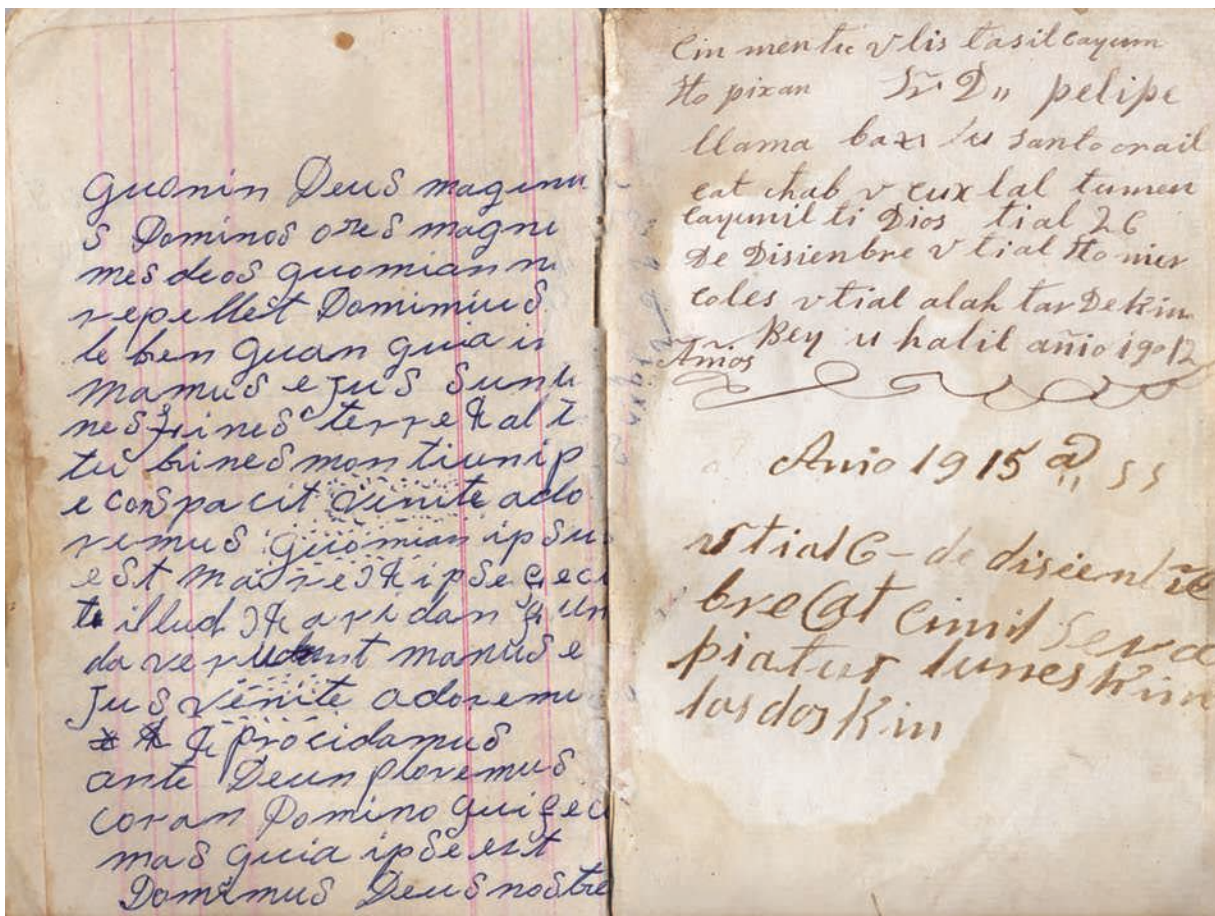 Quonin Deus magnu
s Dominos ores magni
mes deos quomian n
repellet Domimius
le ben quan quia in
mamus e jus sunt
nes fines terre & alt
tu bines montiunip
e conspacit venite ado
remus quomian ipsu
est mare & ipse feci
t illud & aridan fun
da ver unt manus e
jus venite adoremu
& procidamus
ante Deun ploremus
coran Domino qui feci
mas quia ipse est
Domimus Deus nostre
Cin mentic v lis tasil cayum
Ho pixan Sr Dn pelipe
llama bax lu santo orail
cat chab v cux lal tumen
cayumil ti Dios tial 26
De Disienbre v tial Ho mier
coles v tial alah tar De kin
Bey u halil añio 1912
Años
Anio 1915 a,, ss
v tial 6 - de disienbre
bre Cat Cimil Sera
piatur lunes kin
las dos kin